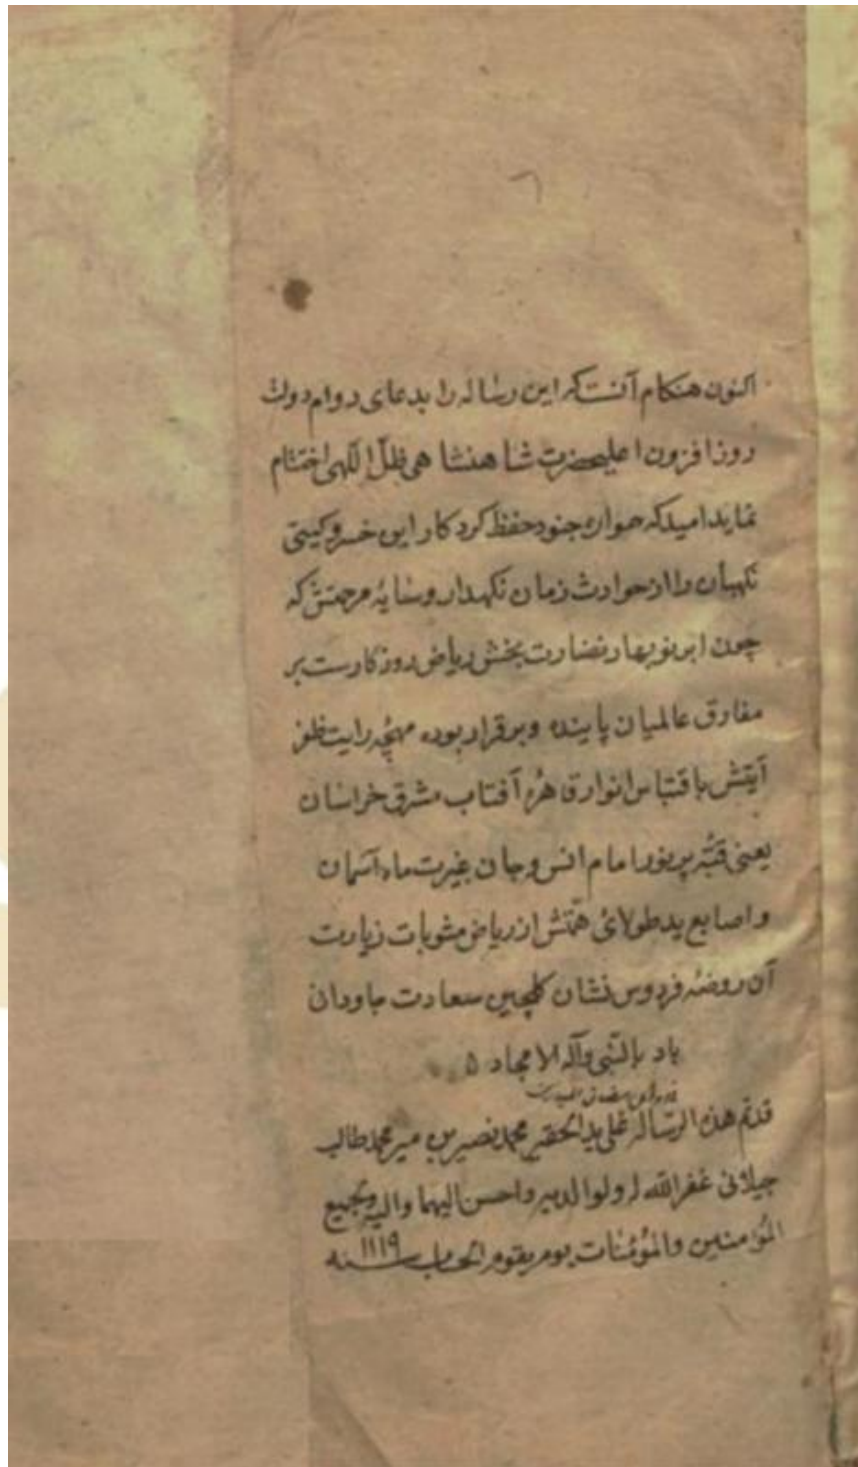 اکنون هنکام آنست که این رساله را بدعای دوام دولت
روز افزون اعلیحضرت شاهنشاهی ظلّ الٓهی اختتام
نماید امید که همواره جنود حفظ کردکار این خسرو کیتی
نکهبان را از حوادث زمان نکهدار و سایهٔ مرحمتش که
چون ابر نوبهار نضارت بخش ریاض روزکارست بر
مفارق عالمیان پاینده و برقرار بوده مهچهٔ رایت ظفر
آیتش باقتباس انوار قاهرهٔ آفتاب مشرق خراسان
یعنی قبّهٔ پر نور امام انس و جان غیرت ماه آسمان
و اصابع ید طولای همّتش از ریاض مثوبات زیارت
آن روضهٔ فردوس نشان کلچین سعادت جاودان
باد بالنّبی وآله الامجاد ۵
رمضان المبارک
قدتم هذه الرساله علی ید الحقیر محمد نصیر بن میر محمد طالب
جیلانی غفر الله له ولوالدیه واحسن الیهما والیه ولجمیع
المؤمنین والمؤمنات یوم یقوم الحساب سنه ۱۱۱۹